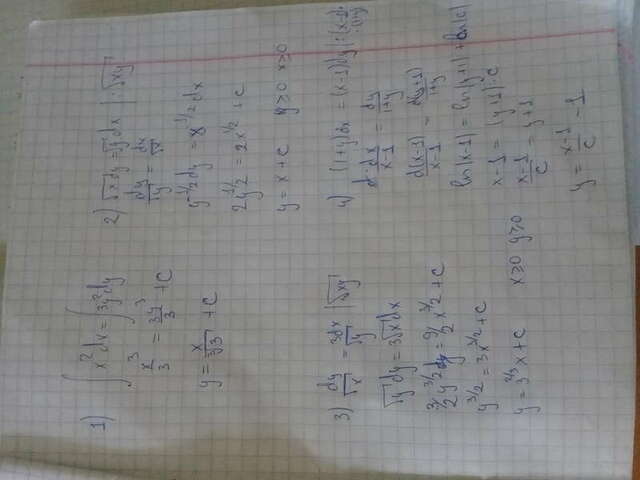 1) ∫x²dx = ∫3y²dy
x³/3 = 3y³/3 + C
y = x/∛3 + C
2) √x dy = √y dx | : √xy
dy/√y = dx/√x
y^(-1/2) dy = x^(-1/2) dx
2y^(1/2) = 2x^(1/2) + C
y = x + C y ≥ 0 x ≥ 0
3) dy/√x = 3dx/√y | √xy
√y dy = 3√x dx
3/2 y^(3/2) dy = 9/2 x^(3/2) + C
y^(3/2) = 3x^(3/2) + C
y = 3^(2/3) x + C x ≥ 0 y ≥ 0
4) (1+y)dx = (x-1)dy | : (x-1)·(1+y)
dx/(x-1) = dy/(1+y)
d(x-1)/(x-1) = d(y+1)/(1+y)
ln|x-1| = ln|y+1| + ln|C|
x-1 = (y+1)·C
(x-1)/C = y+1
y = (x-1)/C - 1